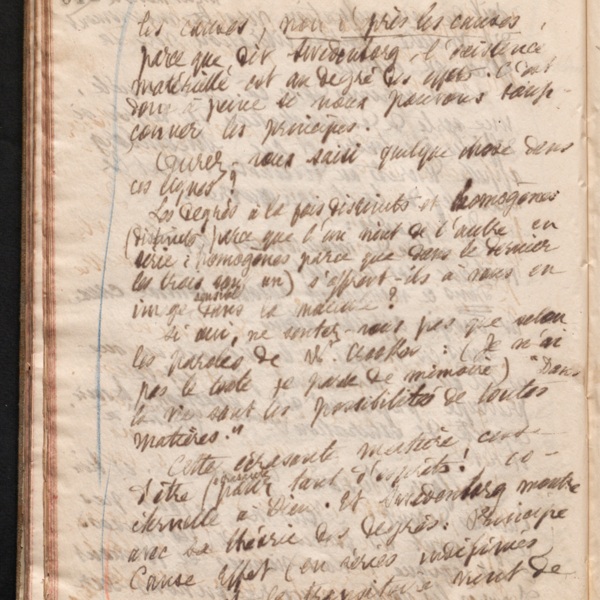 les causes, non d'après les causes,
parce que dit Swedenborg, l'existence
matérielle est au degré des effets. C'est
donc à peine si nous pouvons soup-
çonner les principes.
Aurez-vous saisi quelque chose dans
ces lignes?
Les degrés à la fois distincts et homogènes
(distincts parce que l'un vient de l'autre en
série; homogènes parce que dans le dernier
les trois sont un) s'offrent-ils à vous en
image dans la matière?
Si oui, ne sentez-vous pas que selon
les paroles de Mr. : (Je n'ai
pas le texte je parle de mémoire) "Dans
la vie sont les possibilités de toutes
matières."
Cette écrasante matière
d'être pour tant d'esprits! co-
éternelle à Dieu. Et Swedenborg montre
avec sa théorie des degrés: Principe
Cause Effet (en séries indéfinies
la vient de